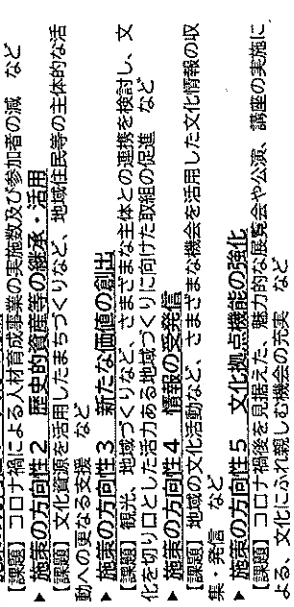 【課題】コロナ禍による人材育成事業の実施数及び参加者の減　など
▶ 施策の方向性２　歴史的資産等の継承・活用
【課題】文化資源を活用したまちづくりなど、地域住民等の主体的な活
動への更なる支援　など
▶ 施策の方向性３　新たな価値の創出
【課題】観光、地域づくりなど、さまざまな主体との連携を検討し、文
化を切り口とした活力ある地域づくりに向けた取組の促進　など
▶ 施策の方向性４　情報の受発信
【課題】地域の文化活動など、さまざまな機会を活用した文化情報の収
集・発信　など
▶ 施策の方向性５　文化拠点機能の強化
【課題】コロナ禍後を見据えた、魅力的な展覧会や公演、講座の実施に
よる、文化にふれ親しむ機会の充実　など